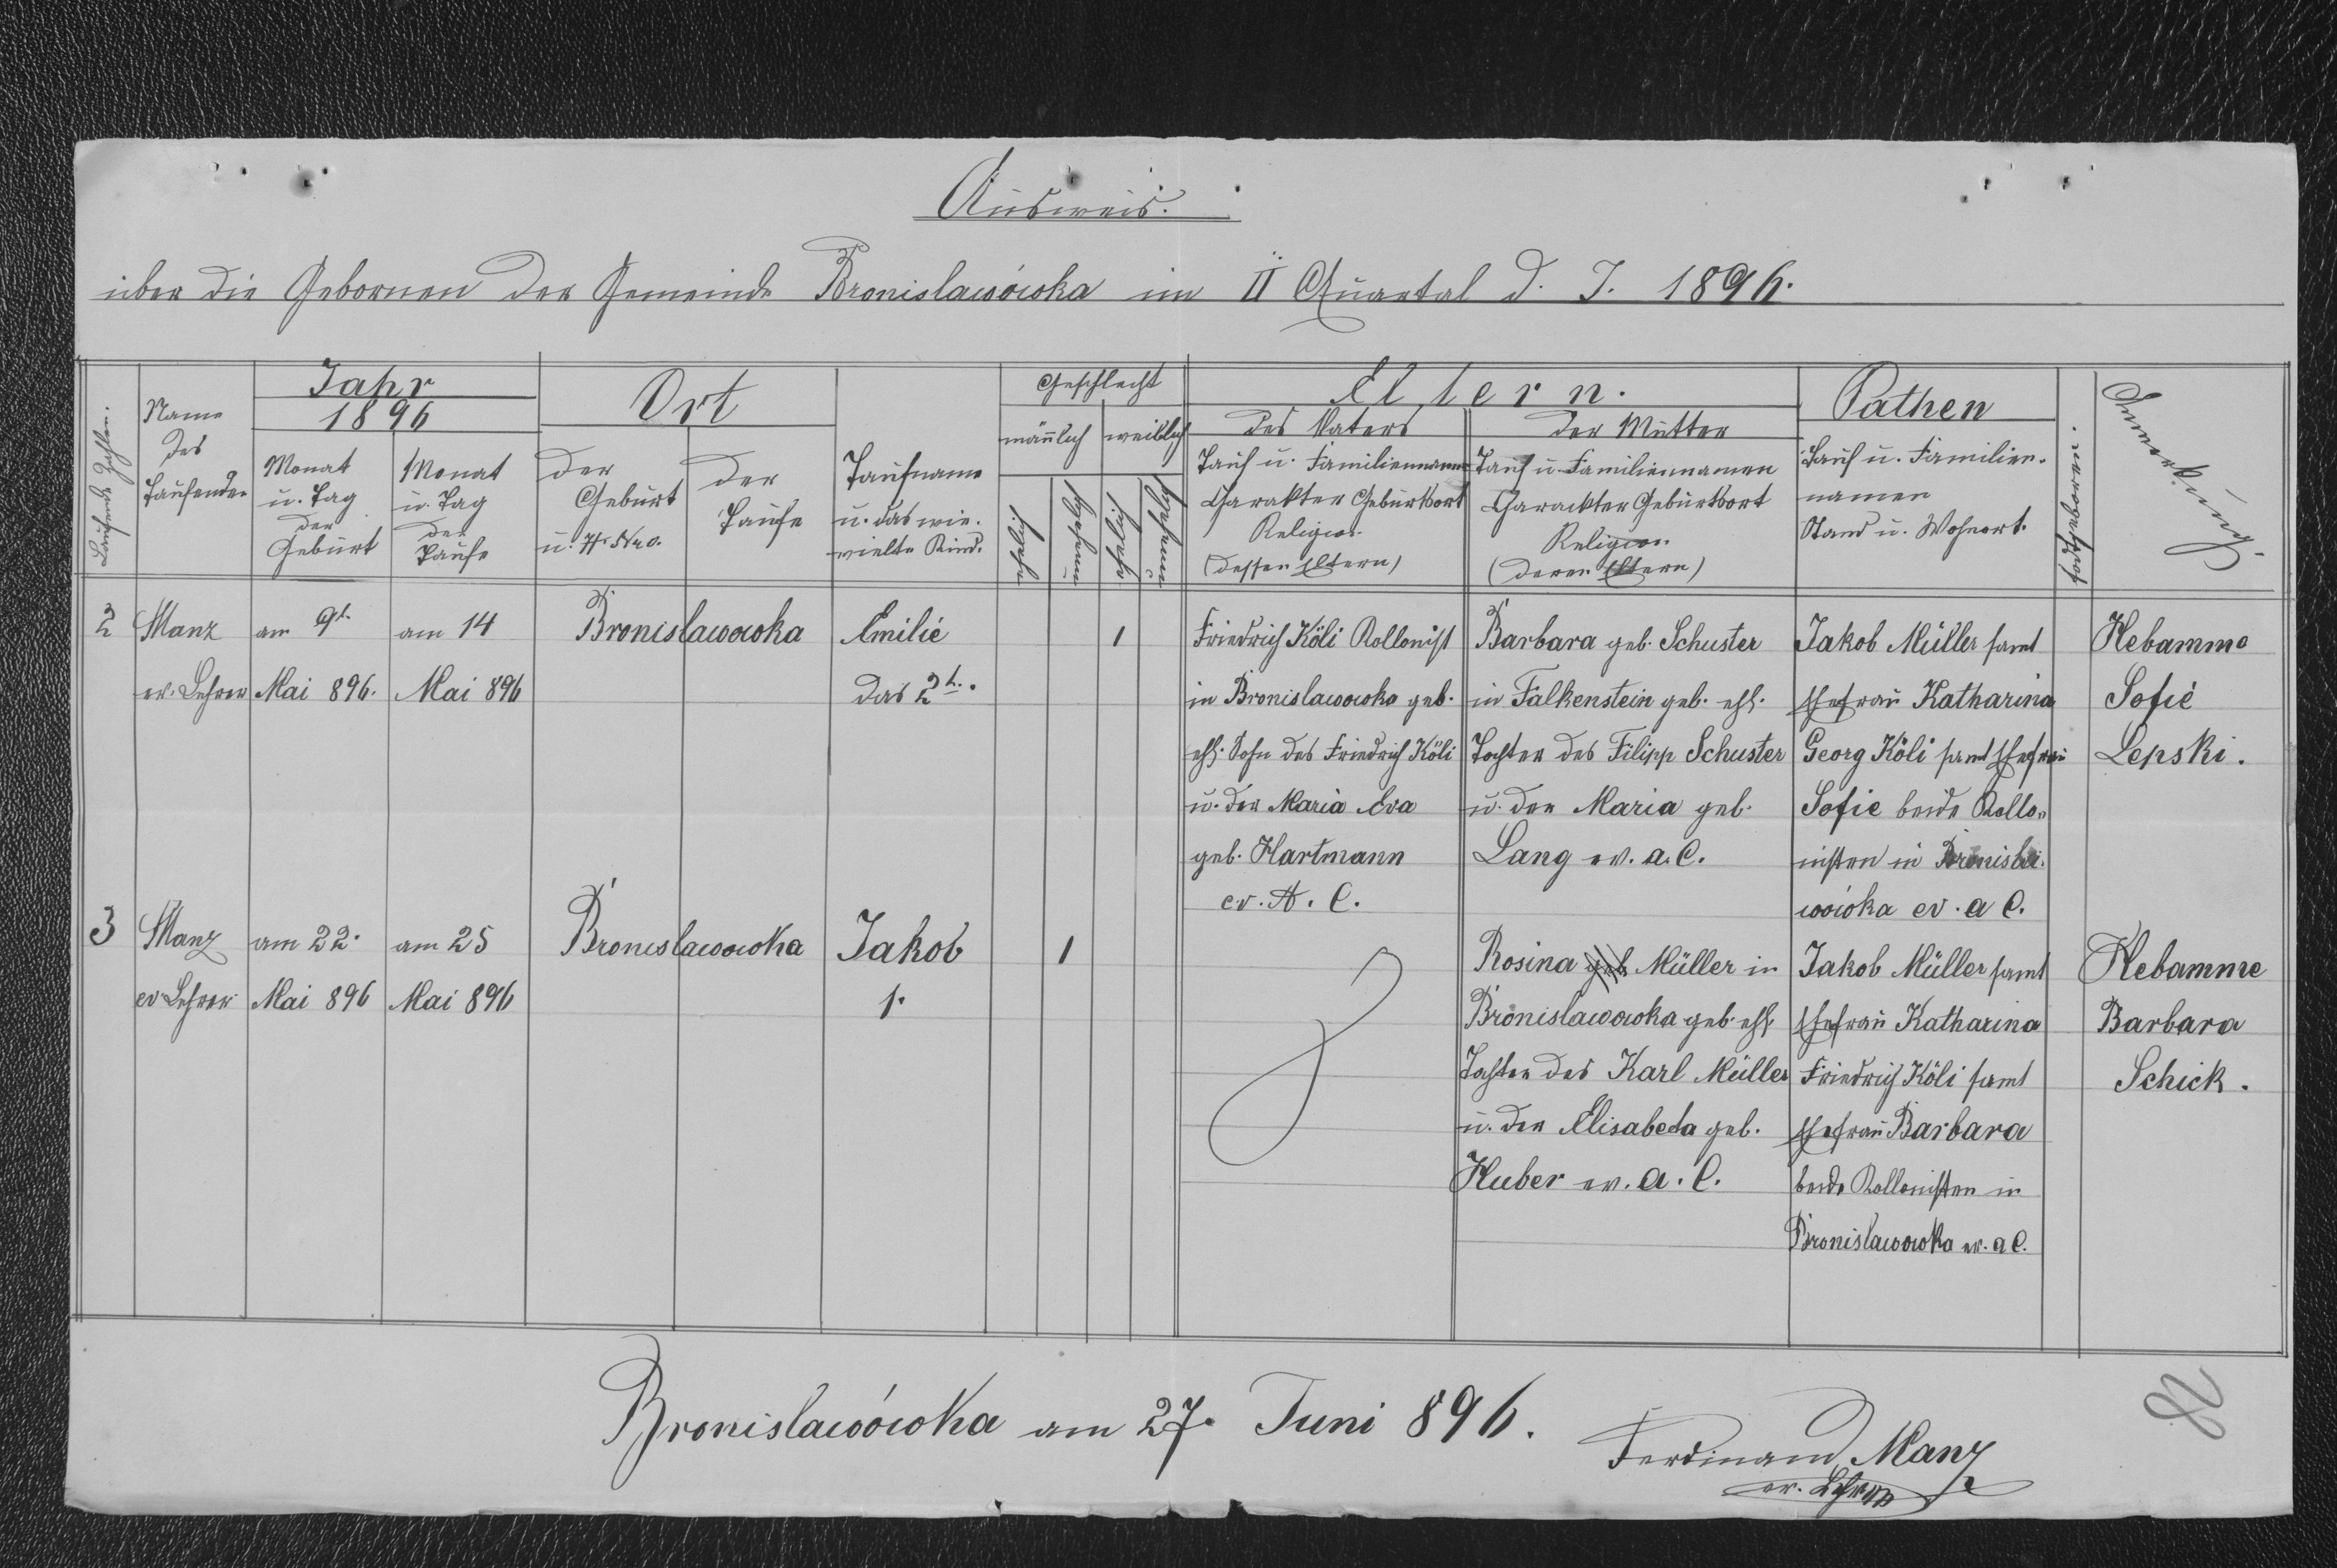 Ausweis.
über die Gebornen der Gemeinde Bronislawówka im II Quartal d. J. 1896.
Laufende Zahlen.
Name
des
Taufenden
Jahr
1896
Monat
u. Tag
der
Geburt
Monat
u. Tag
der
Taufe
Ort
der
Geburt
u. H. Nro.
der
Taufe
Taufname
u. das wie-
vielte Kind.
Geschlecht
männlich weiblich
ehelich
unehelich
ehelich
unehelich
Eltern.
des Vaters
Tauf u. Familienname
Charakter Geburtsort
Religion
(dessen Eltern)
der Mutter
Tauf u. Familiennamen
Charackter Geburtsort
Religion
(deren Eltern)
Pathen
Tauf u. Familien-
namen
Stand u. Wohnort.
todtgeboren.
Anmerkung.
2
Manz
ev. Lehrer
am 9t.
Mai 896.
am 14
Mai 896
Bronislawowka
Emilie
das 2t.
1
Friedrich Köli Kollonist
in Bronislawowka geb.
ehl. Sohn des Friedrich Köli
u. der Maria Eva
geb. Hartmann
ev. A. C.
Barbara geb. Schuster
in Falkenstein geb. ehl.
Tochter des Filipp Schuster
u. der Maria geb.
Lang ev. a. C.
Jakob Müller samt
Ehefrau Katharina
Georg Köli samt Ehefrau
Sofie beide Kollo-
nisten in Bronisla-
wówka ev. a C.
Hebamme
Sofie
Lepski.
3
Manz
ev Lehrer
am 22.
Mai 896
am 25
Mai 896
Bronislawowka
Jakob
1.
1
Rosina geb Müller in
Bronislawowka geb. ehl.
Tochter des Karl Müller
u. der Elisabeta geb.
Huber ev. a. C.
Jakob Müller samt
Ehefrau Katharina
Friedrich Köli samt
Ehefrau Barbara
beide Kollonisten in
Bronislawowka ev. a C.
Hebamme
Barbara
Schick.
Bronislawówka am 27. Juni 896.
Ferdinand Manz
ev. Lehrer